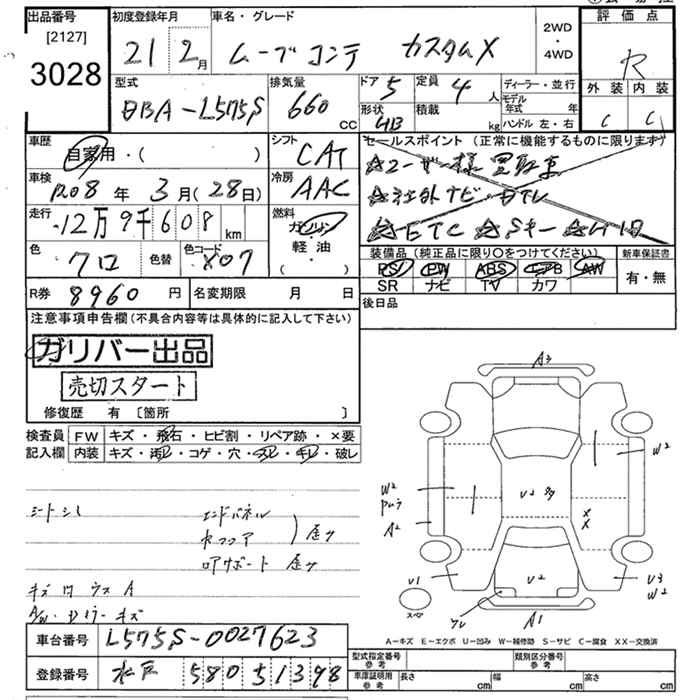 出品番号 初度登録年月 車名・グレード 評価点
[2127]
3028
21 2月 ムーブコンテ カスタムX 2WD・4WD R
型式 排気量 ドア 5 定員 4人 ディーラー・並行 外装 内装
DBA-L575S 660 CC 形状 HB 積載 kg モデル年式 年 ハンドル 左・右 C C
車歴 シフト セールスポイント(正常に機能するものに限ります)
自家用・( ) CAT ☆ユーザー様買取車
車検 R08年 3月(28日) 冷房 AAC ☆社外ナビ・DTV
走行 12万9千608km 燃料 ガソリン・軽油・( ) ☆ETC ☆Sキー ☆HID
色 クロ 色替 色コード X07 装備品(純正品に限り○をつけてください) 新車保証書
PS PW ABS エアB AW 有・無
SR ナビ TV カワ
R券 8960円 名変期限 月 日 後日品
注意事項申告欄(不具合内容等は具体的に記入して下さい)
ガリバー出品
売切スタート
修復歴 有〔箇所 〕
検査員 FW キズ・飛石・ヒビ割・リペア跡・×要
記入欄 内装 キズ・汚れ・コゲ・穴・スレ・キレ・破レ
A3
W2
W2
U2
A2
シートシミ エンドパネル
歪み
リアサポート 歪み
U1 U2 U3
W2
キズ
A/W キズ
スペア A1
A-キズ E-エクボ U-凹み W-補修跡 S-サビ C-腐食 XX-交換済
車台番号 L575S-0027623
登録番号 水戸 580 5 1398
型式指定番号 参考 類別区分番号 参考
車庫証明用 参考 長さ cm 幅 cm 高さ cm